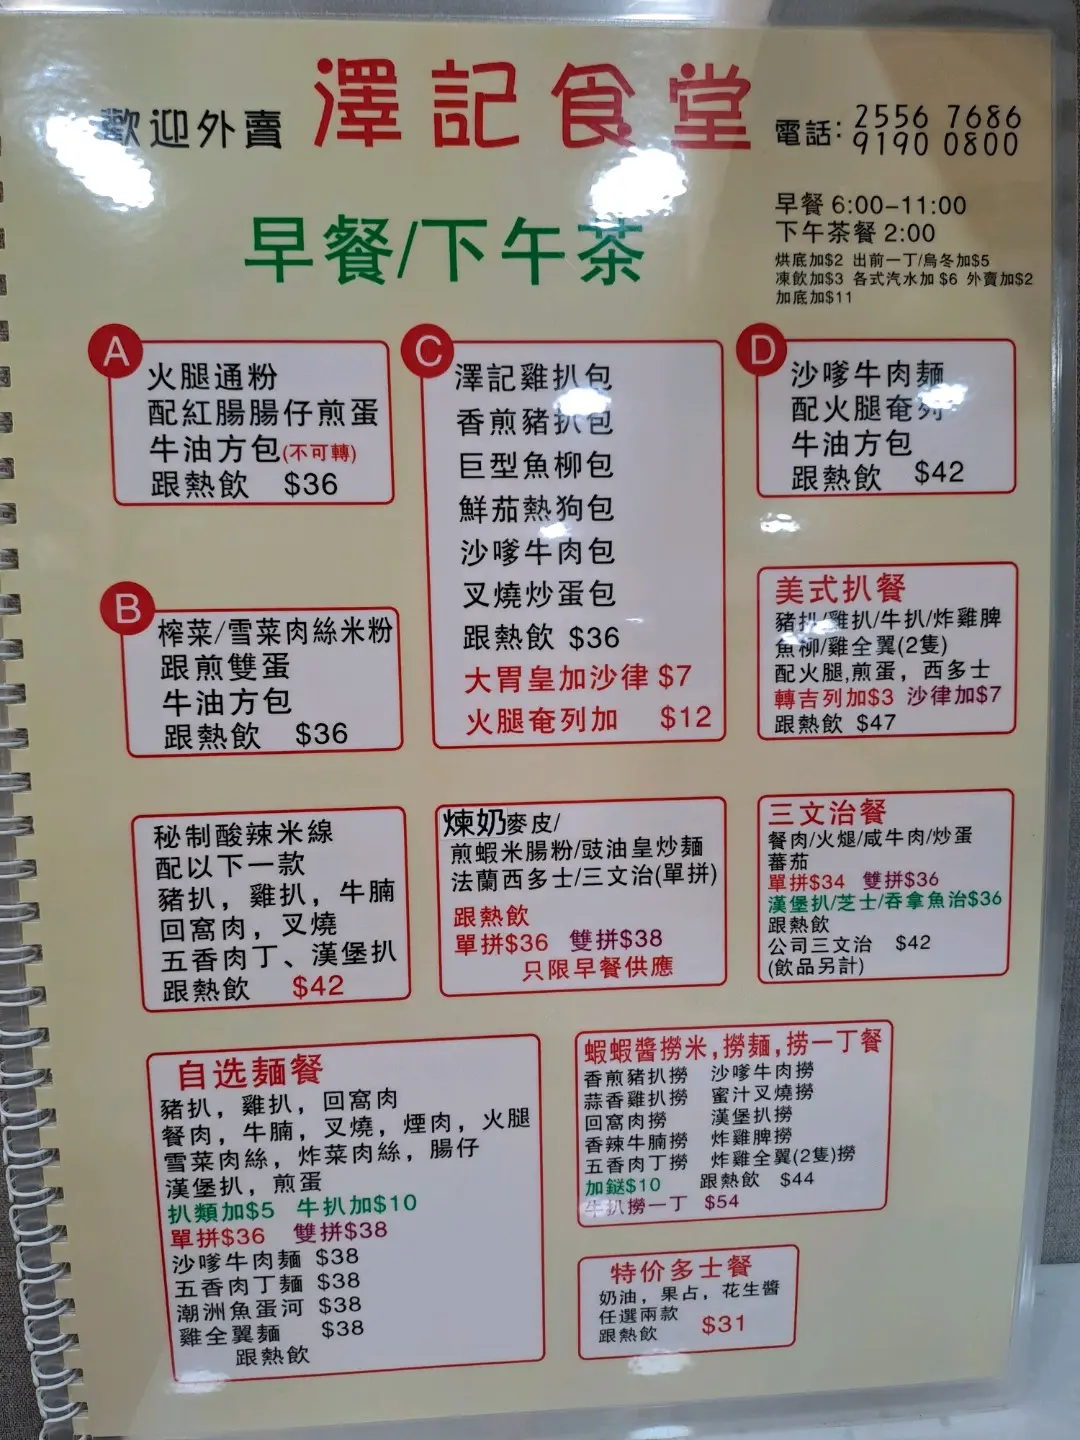 歡迎外賣
澤記食堂
電話: 2556 7686
9190 0800
早餐/下午茶
早餐 6:00-11:00
下午茶餐 2:00
烘底加$2 出前一丁/烏冬加$5
凍飲加$3 各式汽水加 $6 外賣加$2
加底加$11
A
火腿通粉
配紅腸腸仔煎蛋
牛油方包(不可轉)
跟熱飲 $36
B
榨菜/雪菜肉絲米粉
跟煎雙蛋
牛油方包
跟熱飲 $36
C
澤記雞扒包
香煎豬扒包
巨型魚柳包
鮮茄熱狗包
沙嗲牛肉包
叉燒炒蛋包
跟熱飲 $36
大胃皇加沙律 $7
火腿奄列加 $12
D
沙嗲牛肉麵
配火腿奄列
牛油方包
跟熱飲 $42
美式扒餐
豬扒/雞扒/牛扒/炸雞脾
魚柳/雞全翼(2隻)
配火腿,煎蛋，西多士
轉吉列加$3 沙律加$7
跟熱飲 $47
秘制酸辣米線
配以下一款
豬扒，雞扒，牛腩
回窩肉，叉燒
五香肉丁、漢堡扒
跟熱飲 $42
煉奶麥皮/
煎蝦米腸粉/豉油皇炒麵
法蘭西多士/三文治(單拼)
跟熱飲
單拼$36 雙拼$38
只限早餐供應
三文治餐
餐肉/火腿/咸牛肉/炒蛋
蕃茄
單拼$34 雙拼$36
漢堡扒/芝士/吞拿魚治$36
跟熱飲
公司三文治 $42
(飲品另計)
自选麵餐
豬扒，雞扒，回窩肉
餐肉，牛腩，叉燒，煙肉，火腿
雪菜肉絲，炸菜肉絲，腸仔
漢堡扒，煎蛋
扒類加$5 牛扒加$10
單拼$36 雙拼$38
沙嗲牛肉麵 $38
五香肉丁麵 $38
潮洲魚蛋河 $38
雞全翼麵 $38
跟熱飲
蝦蝦醬撈米,撈麵,撈一丁餐
香煎豬扒撈 沙嗲牛肉撈
蒜香雞扒撈 蜜汁叉燒撈
回窩肉撈 漢堡扒撈
香辣牛腩撈 炸雞脾撈
五香肉丁撈 炸雞全翼(2隻)撈
加鎹$10 跟熱飲 $44
牛扒撈一丁 $54
特价多士餐
奶油，果占，花生醬
任選兩款
跟熱飲 $31